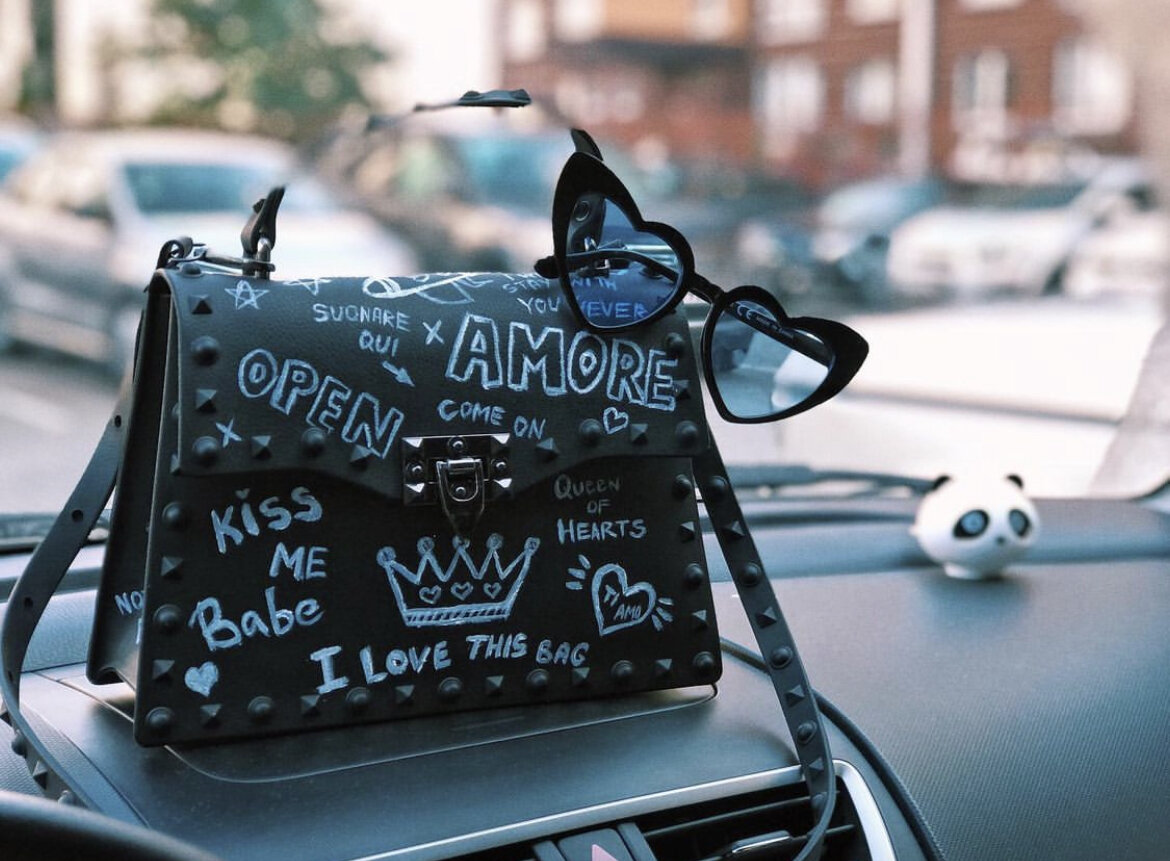 STAY WITH
YOU 4EVER
SUONARE
QUI
AMORE
OPEN
COME ON
QUEEN
OF
HEARTS
KISS
ME
Babe
TI
AMO
I LOVE THIS BAG
NO
CE